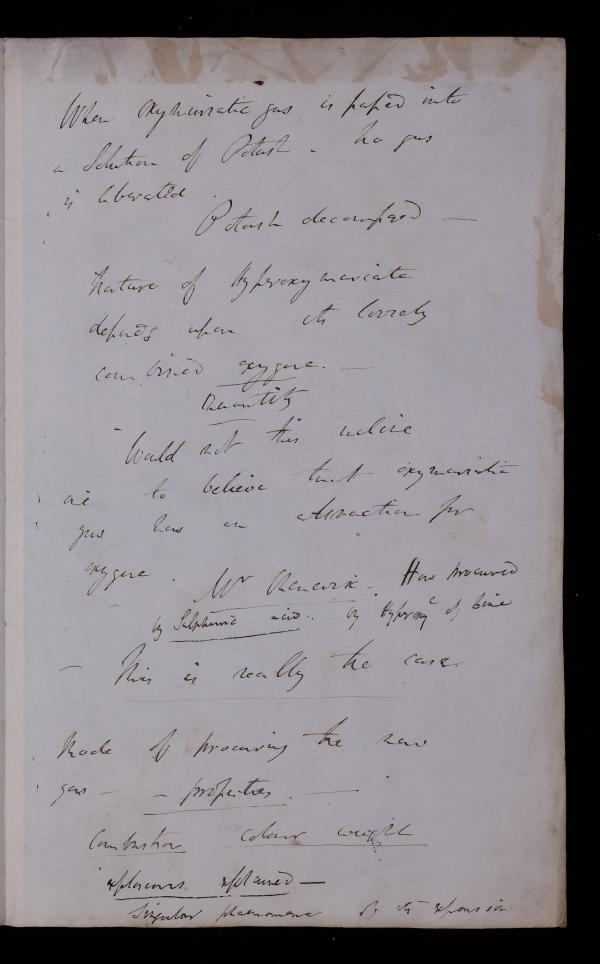 When oxymuriatic gas is passed into
a solution of Potash - no gas
is liberated.
Potash decomposed —
Nature of Hyperoxymuriate
depends upon its loosely
combined oxygene. —
Quantity
Would not this induce
us to believe that oxymuriatic
gas has an attraction for
oxygene. Mr Chenevix - Has procured
by Sulphuric acid. by Hyperoxyc of
— This is really the case.
Mode of procuring the new
gas — — properties. —
Combustion colour weight
explosions explained —
Singular phaenomena of its expansion